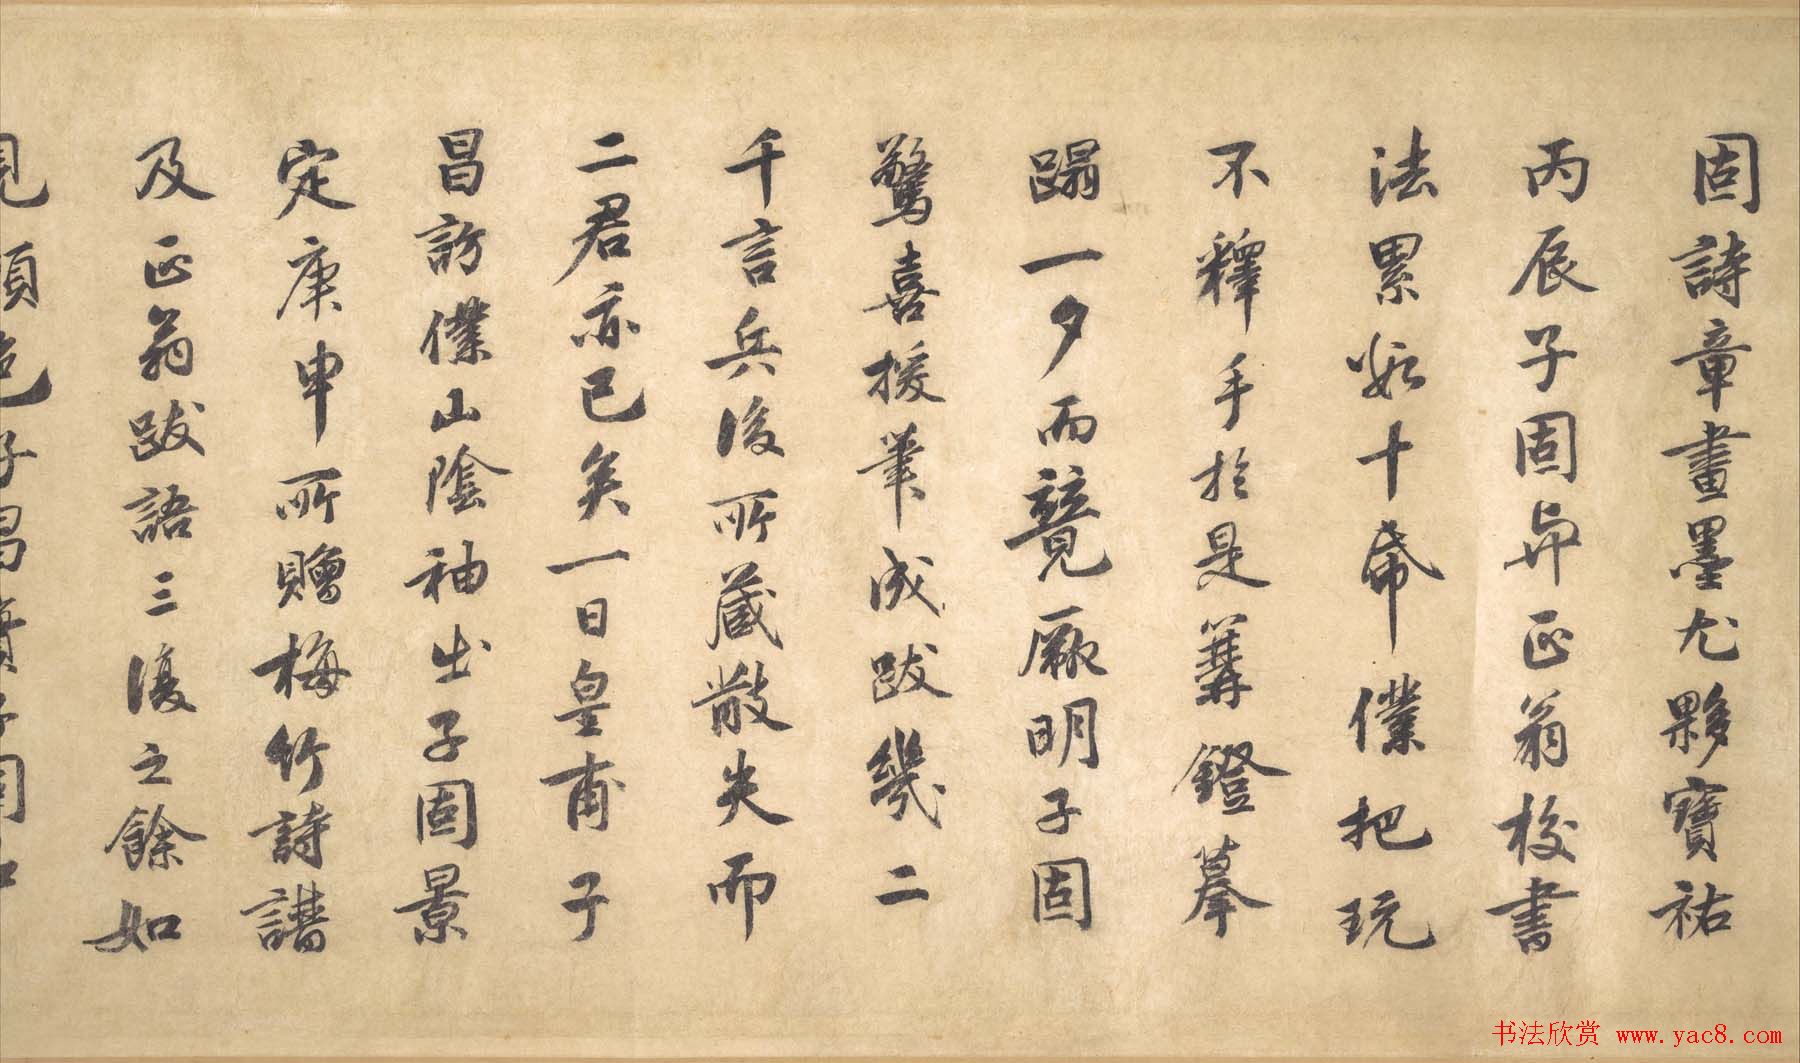 固詩章畫墨尤夥寶祐
丙辰子固与正翁校書
法累數十番僕把玩
不釋手於是篝鐙摹
蹋一夕而競厥明子固
驚喜援筆成跋幾二
千言兵後所藏散失而
二君亦已矣一日皇甫子
昌訪僕山陰袖出子固景
定庚申所贈梅竹詩譜
及正翁跋語三復之餘如
見
書法欣赏 www.yac8.com